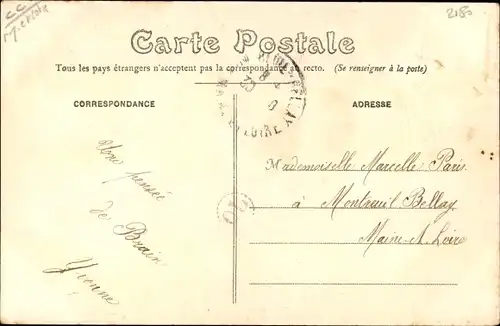 2180
Carte Postale
Tous les pays étrangers n'acceptent pas la correspondance au recto. (Se renseigner à la poste)
CORRESPONDANCE
ADRESSE
Une pensée
de Brain
Yvonne
Mademoiselle Marcelle Paris
à Montreuil Bellay
Maine-et-Loire